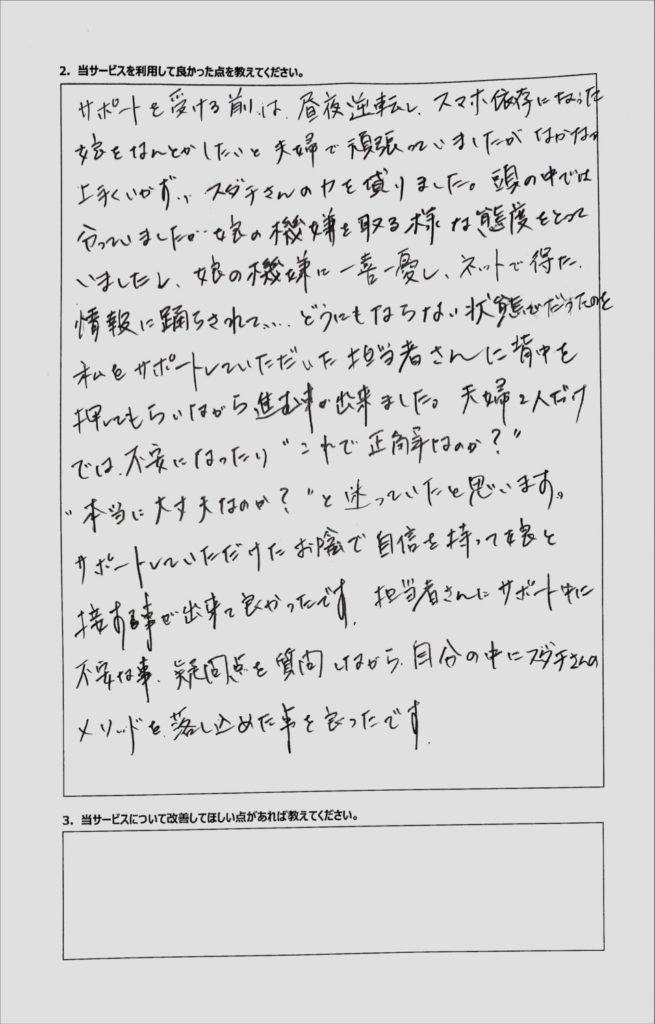 2. 当サービスを利用して良かった点を教えてください。
サポートを受ける前は、昼夜逆転し、スマホ依存になった
娘をなんとかしたいと夫婦で頑張っていましたが なかなか
上手くいかず、、スダチさんの力を借りました。頭の中では
分っていましたが、娘の機嫌を取る様な態度をとって
いましたし、娘の機嫌に一喜一憂し、ネットで得た、
情報に踊らされて、、、どうにもならない状態だったのを
私をサポートしていただいた担当者さんに背中を
押してもらいながら進む事が出来ました。夫婦2人だけ
では、不安になったり"これで正解なのか?"
"本当に大丈夫なのか?"と迷っていたと思います。
サポートしていただけたお陰で自信を持って娘と
接する事が出来て良かったです。担当者さんにサポート中に
不安な事、疑問点を質問しながら、自分の中にスダチさんの
メソッドを落し込めた事を良ったです。
3. 当サービスについて改善してほしい点があれば教えてください。